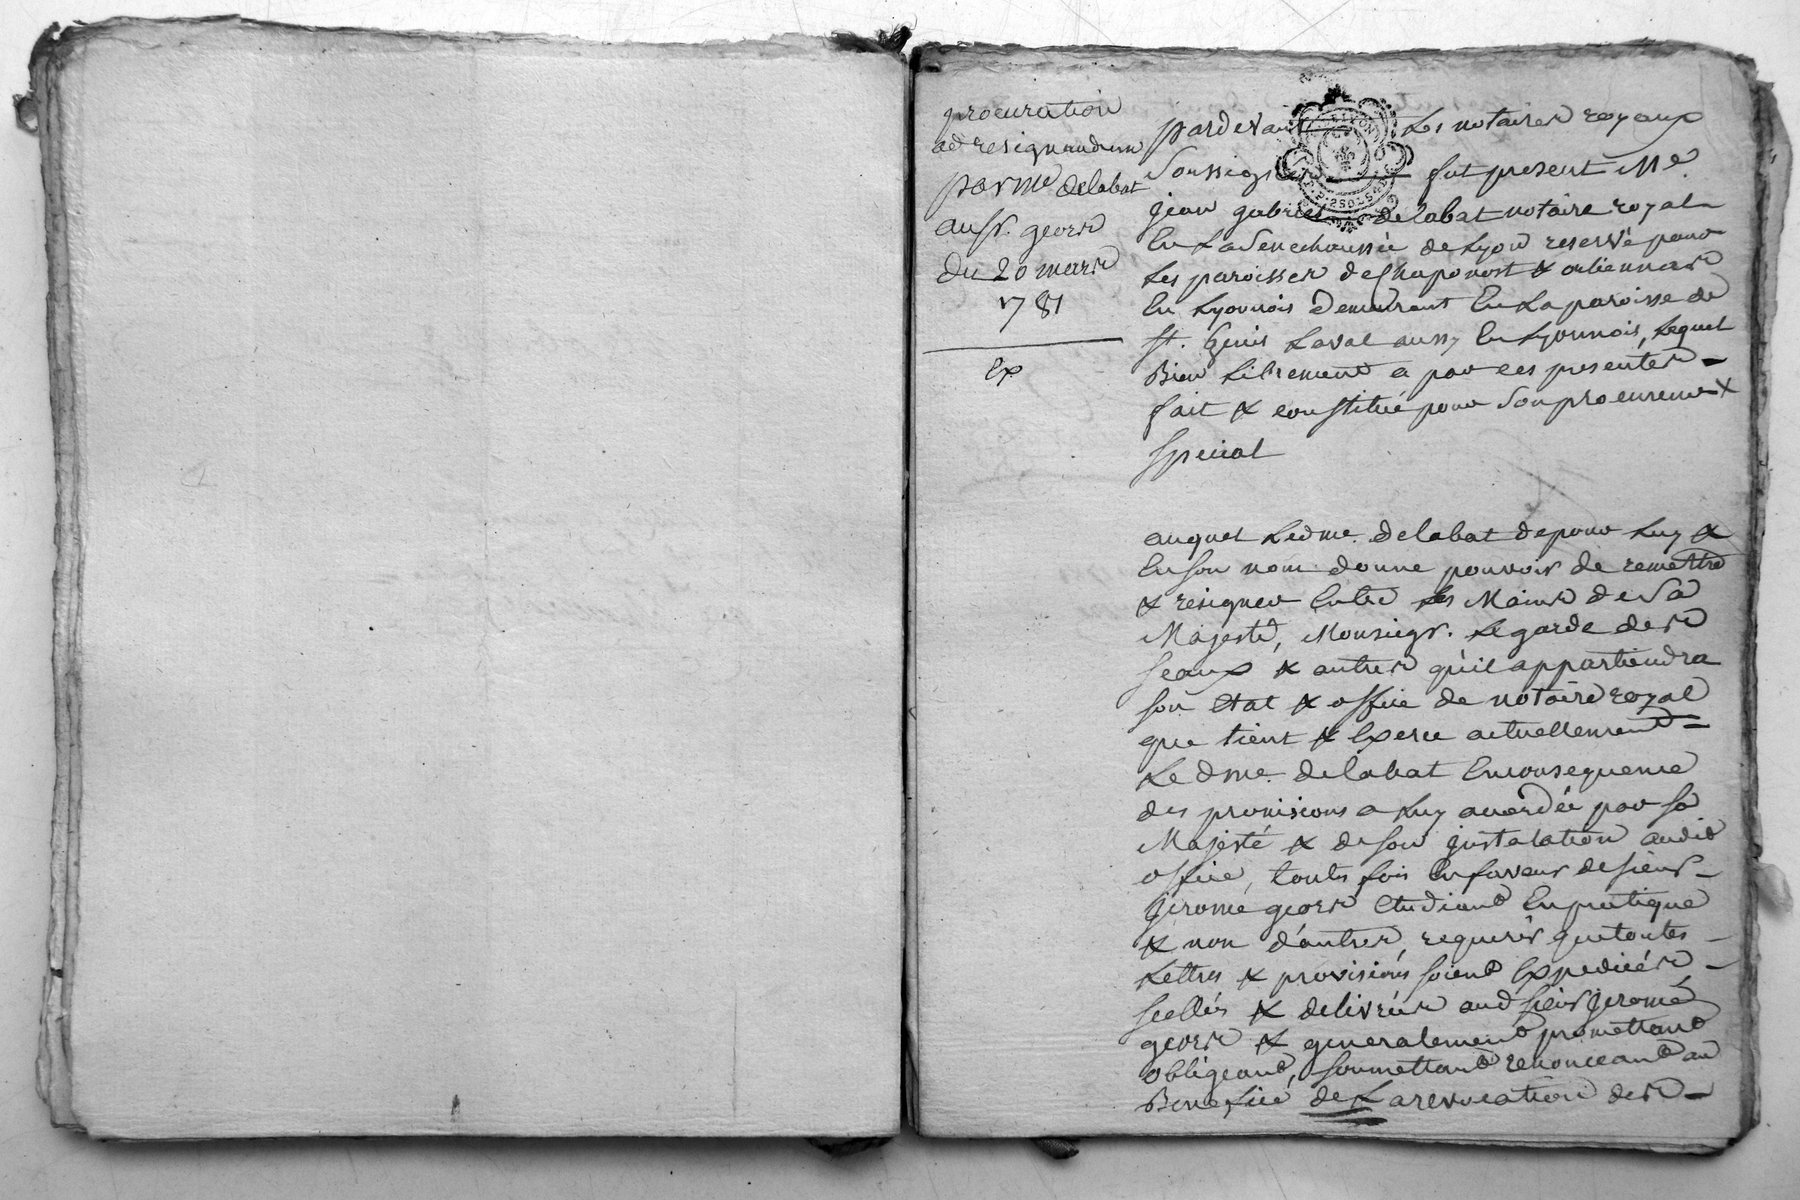 procuration
ad resignandum
par me delabat
au sr. george
du 20 mars
1781
Ex
pardevant Les notaires royaux
Soussignés fut present Me.
jean gabriel delabat notaire royal
En La Senechaussée de Lyon reservé pour
Les paroisses de Chaponost & orliennas
En Lyonnois demeurant En La paroisse de
st. Genis Laval aussy En Lyonnois, Lequel
Bien Librement a par ces presentes
fait & constitué pour Son procureur
special
auquel Led me. delabat de pour Luy &
En son nom donne pouvoir de remettre
& resigner Entre Les Mains de Sa
Majesté, Monsiegr. Le garde des
seaux & autres qu'il appartiendra
son Etat & office de notaire royal
que tient & Exerce actuellement
Le d me. delabat En consequence
des provisions a Luy accordée par sa
Majesté & de son jnstalation audit
office, toutes fois En faveur de sieur
jerome geors Etudiant En pratique
& non d'autres, requerir que toutes
Lettres & provisions soient Expediées
scellés & delivrées aud sieur jerome
geors & generalement promettant
obligeant, soumettant renonceant au
Benefice de La revocation des